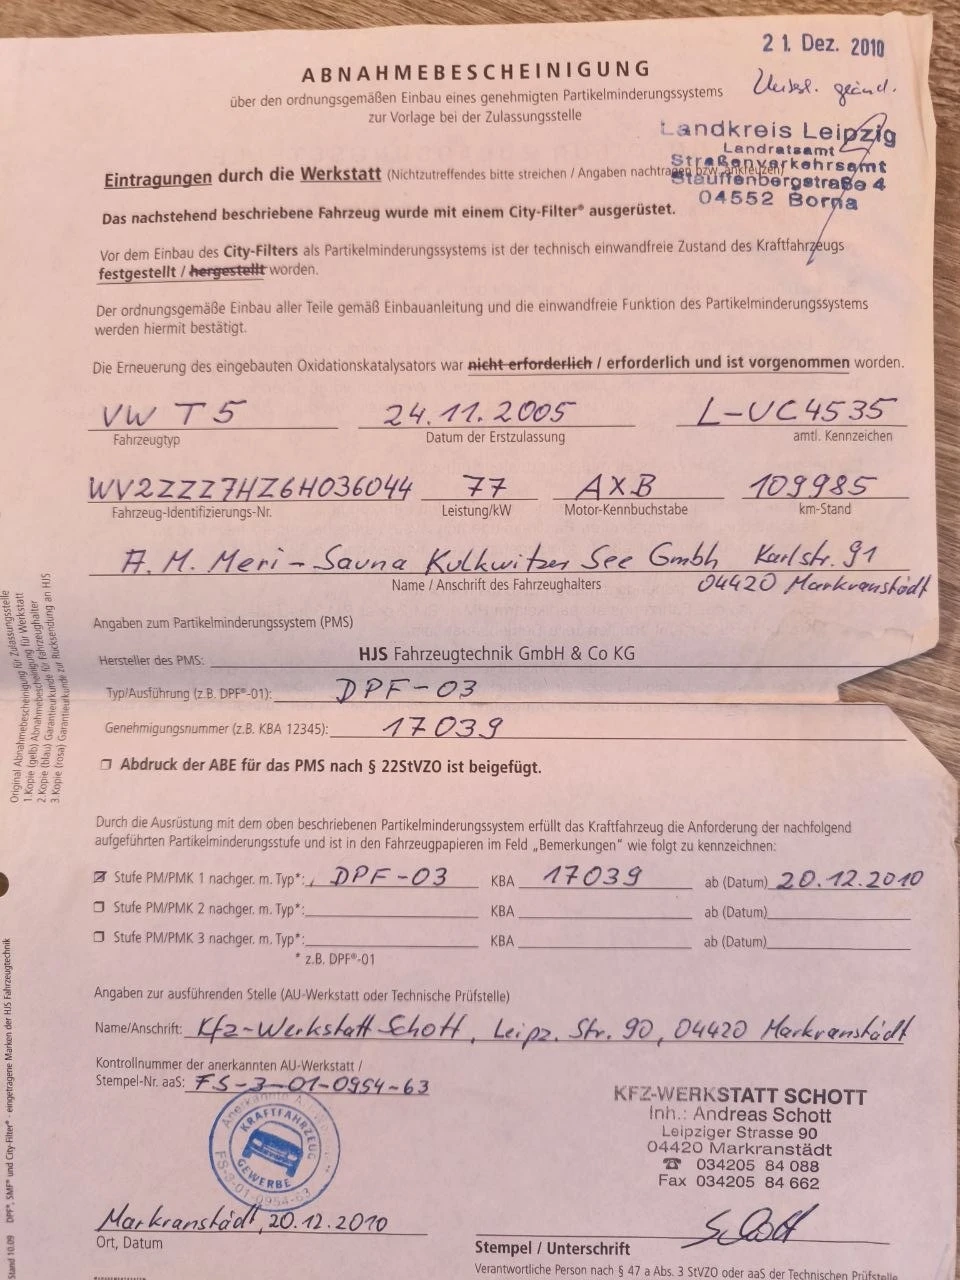 21. Dez. 2010
ABNAHMEBESCHEINIGUNG
über den ordnungsgemäßen Einbau eines genehmigten Partikelminderungssystems
zur Vorlage bei der Zulassungsstelle
geänd.
Landkreis Leipzig
Landratsamt
Straßenverkehrsamt
Stauffenbergstraße 4
04552 Borna
Eintragungen durch die Werkstatt (Nichtzutreffendes bitte streichen / Angaben nachtragen bzw. ankreuzen)
Das nachstehend beschriebene Fahrzeug wurde mit einem City-Filter® ausgerüstet.
Vor dem Einbau des City-Filters als Partikelminderungssystems ist der technisch einwandfreie Zustand des Kraftfahrzeugs
festgestellt / hergestellt worden.
Der ordnungsgemäße Einbau aller Teile gemäß Einbauanleitung und die einwandfreie Funktion des Partikelminderungssystems
werden hiermit bestätigt.
Die Erneuerung des eingebauten Oxidationskatalysators war nicht erforderlich / erforderlich und ist vorgenommen worden.
VW T5 24.11.2005 L-UC4535
Fahrzeugtyp Datum der Erstzulassung amtl. Kennzeichen
WV2ZZZ7HZ6H036044 77 AXB 109985
Fahrzeug-Identifizierungs-Nr. Leistung/kW Motor-Kennbuchstabe km-Stand
A. M. Meri-Sauna Kulkwitzer See Gmbh Karlstr. 91
Name / Anschrift des Fahrzeughalters 04420 Markranstädt
Angaben zum Partikelminderungssystem (PMS)
Hersteller des PMS: HJS Fahrzeugtechnik GmbH & Co KG
Typ/Ausführung (z.B. DPF®-01): DPF-03
Genehmigungsnummer (z.B. KBA 12345): 17039
Abdruck der ABE für das PMS nach § 22StVZO ist beigefügt.
Durch die Ausrüstung mit dem oben beschriebenen Partikelminderungssystem erfüllt das Kraftfahrzeug die Anforderung der nachfolgend
aufgeführten Partikelminderungsstufe und ist in den Fahrzeugpapieren im Feld „Bemerkungen" wie folgt zu kennzeichnen:
Stufe PM/PMK 1 nachger. m. Typ*: DPF-03 KBA 17039 ab (Datum) 20.12.2010
Stufe PM/PMK 2 nachger. m. Typ*: KBA ab (Datum)
Stufe PM/PMK 3 nachger. m. Typ*: KBA ab (Datum)
* z.B. DPF®-01
Angaben zur ausführenden Stelle (AU-Werkstatt oder Technische Prüfstelle)
Name/Anschrift: Kfz-Werkstatt Schott, Leipz. Str. 90, 04420 Markranstädt
Kontrollnummer der anerkannten AU-Werkstatt /
Stempel-Nr. aaS: FS-3-01-0954-63
KRAFTFAHRZEUG
GEWERBE
FS-3-01-0954-63
KFZ-WERKSTATT SCHOTT
Inh.: Andreas Schott
Leipziger Strasse 90
04420 Markranstädt
☎ 034205 84 088
Fax 034205 84 662
Markranstädt, 20.12.2010
Ort, Datum
Stempel / Unterschrift
Verantwortliche Person nach § 47 a Abs. 3 StVZO oder aaS der Technischen Prüfstelle
Original Abnahmebescheinigung für Zulassungsstelle
1.Kopie (gelb) Abnahmebescheinigung für Werkstatt
2.Kopie (blau) Garantieurkunde für Fahrzeughalter
3.Kopie (rosa) Garantieurkunde zur Rücksendung an HJS
Stand 10.09 DPF®, SMF® und City-Filter® - eingetragene Marken der HJS Fahrzeugtechnik